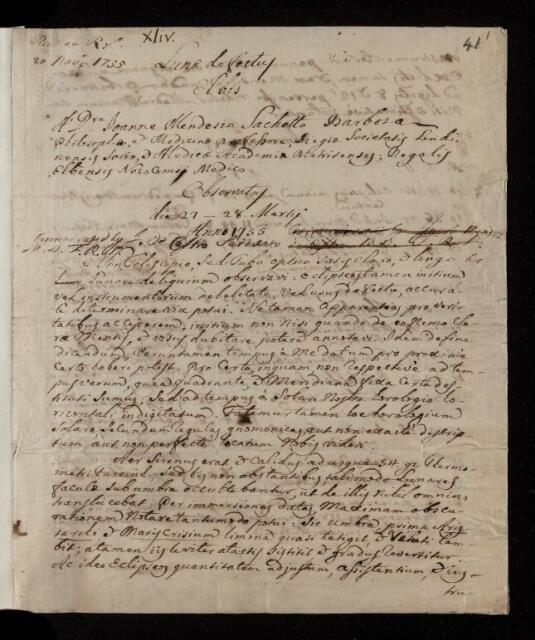 Read at R.S. XLIV. 41
20 Nov. 1755 Lunæ defectus
Elvis
A Dre Joanne Mendesio Sachetto Barbosa
Philosophiæ, & Medicinæ Professore, Regiæ Societatis Londi-
nensis Socio, & Medicæ Academiæ Matritensis, Regalis
Elvensis Nosocomij Medico
Observatus
die 27 - 28 Martij
Anno 1755
Communicated by J. De Castro Sarmento
M.D. F.R.S.
Telescopio, sed Tubo optico satis claro, & longo hic
Lunæ deliquium observavi: Eclipseos tamen initium
vel instrumentorum debilitate, vel usus defectu, accura-
te determinare via potui. Notamen Apparentias pro veri-
tatibus acciperem, initium non nisi quando de eo nemo sa-
næ Mentis, & visus dubitare poterat annotavi. Idem de fine
dicendum. Veruntamen tempus à Me datum pro proxime
certo haberi potest. Pro certo, inquam non respective ad tem-
pus verum, quia quadrante, & Meridiana fixa certa des-
tituti sumus, sed ad tempus à Solari Nostro horologio ho-
rizontali indigitatum. Fateamur tamen hoc horologium
Solare secundum regulas gnomonicas, aut non exacte descrip-
tum, aut non perfecte locatum Nobis videri.
Aer serenus erat & calidus ad usque 54 gr. Thermo-
metri Farenh. Sed his non obstantibus tali modo Lunares
faculæ sub umbra occultebantur, ut de illis nihil omnino
transluceret. Per immersiones datas Maximam obscu-
rationem notare tantummodo potui. Sic umbra prima Aris-
tarchi & Maris Crisium limina quasi tetigit, & veluti lam-
bit; attamen iis leviter atactis sistitit & gradus revertitur
Ac ideo Eclipseos quantitatem adjustum, assistentium, & ins-
tru